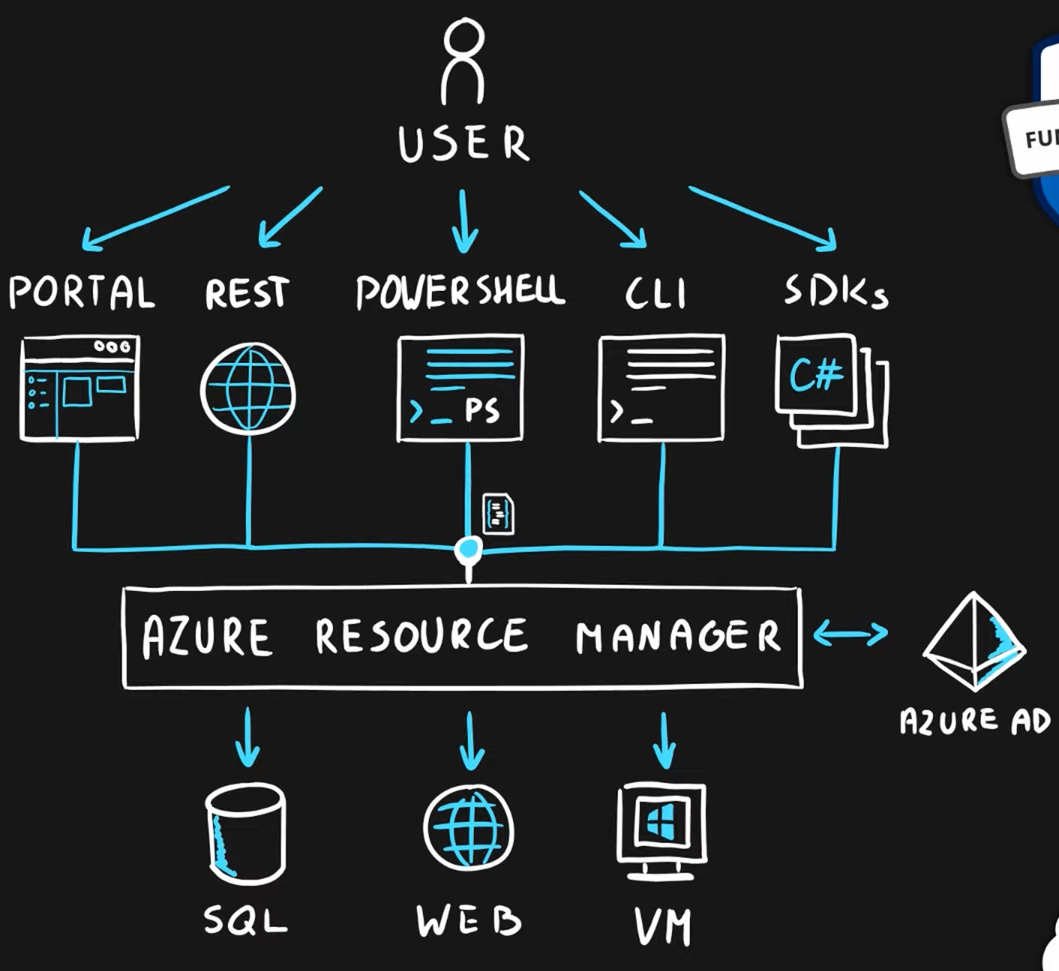 USER
PORTAL
REST
POWERSHELL
CLI
SDKs
C#
>_ PS
>_
AZURE RESOURCE MANAGER
AZURE AD
SQL
WEB
VM